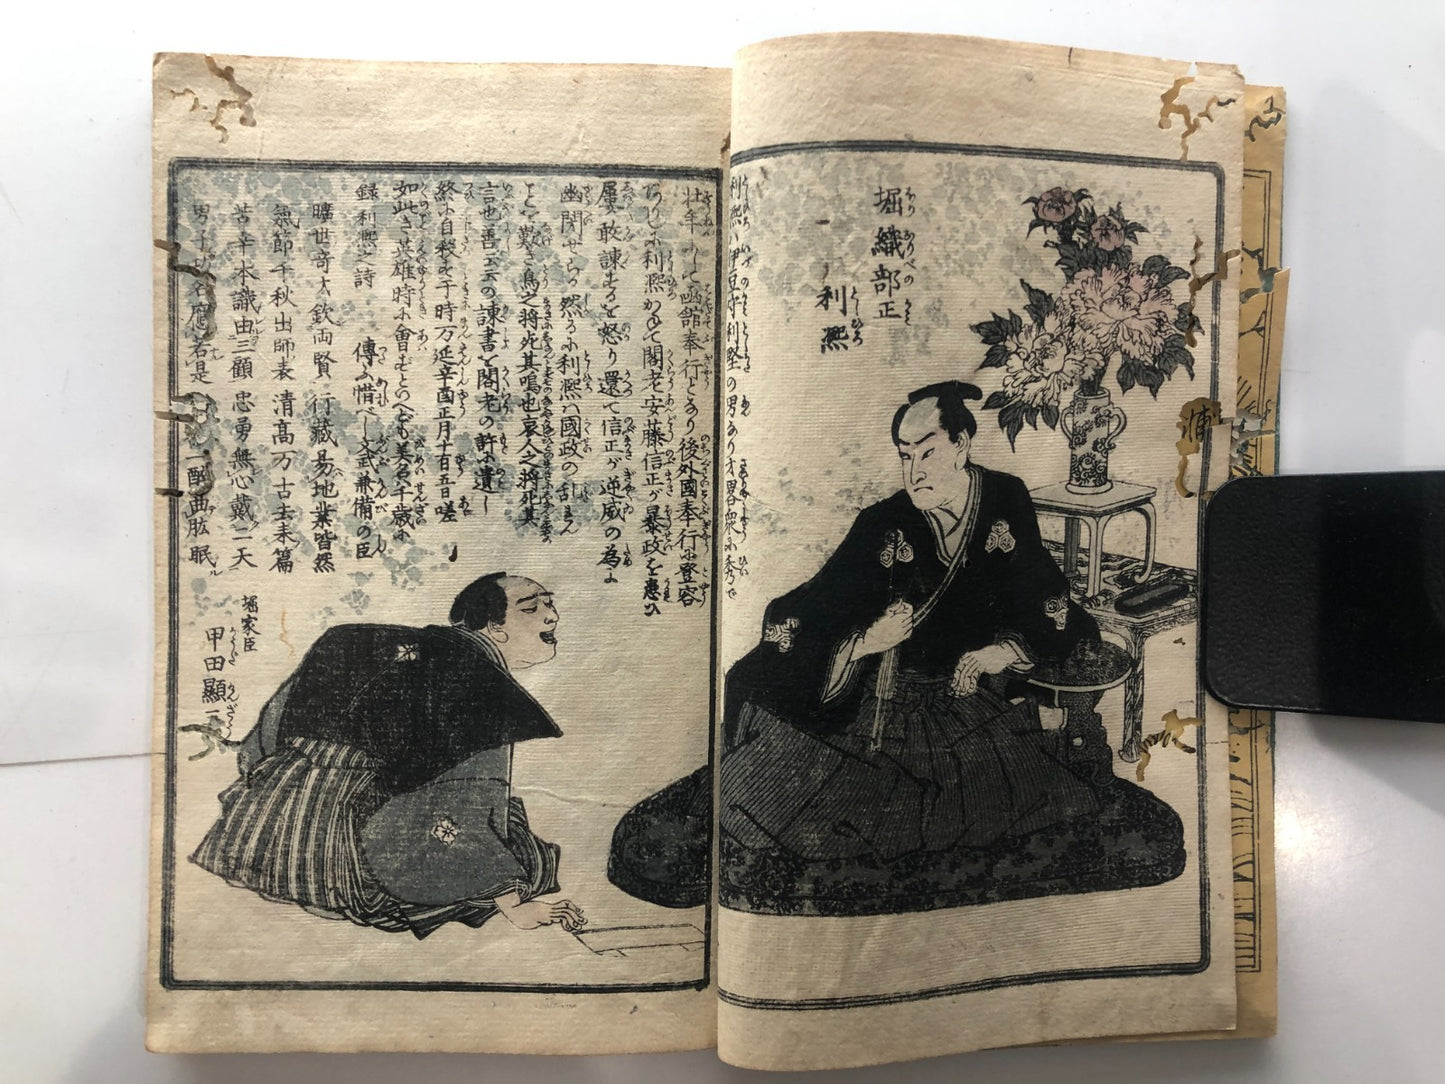 堀織部正
利熙
利熙ハ伊豆守利堅の男なり才畧衆に秀で
壮年にして函館奉行となり後外國奉行に登容
ありしに利熙かねて閣老安藤信正が暴政を患ひ
屡敢諌するを怒り還て信正が逆威の為に
幽閉せらる然るに利熙ハ國政の乱
と歎き鳥之将死其鳴也哀人之将死其
言也善云云の諌書を閣老の許に遺し
終に自殺す于時万延辛酉正月十百五日嗟
如此き英雄時に會ずといへども美名千歳に
傳ふ惜べし文武兼備の臣
録利熙之詩
曠世奇才欽両賢 行藏易地業皆然
氣節千秋出師表 清高万古去来篇
苦辛本識由三顧 忠勇無心戴一天
男子功名應若是 一酔曲肱眠
堀家臣
甲田顯三